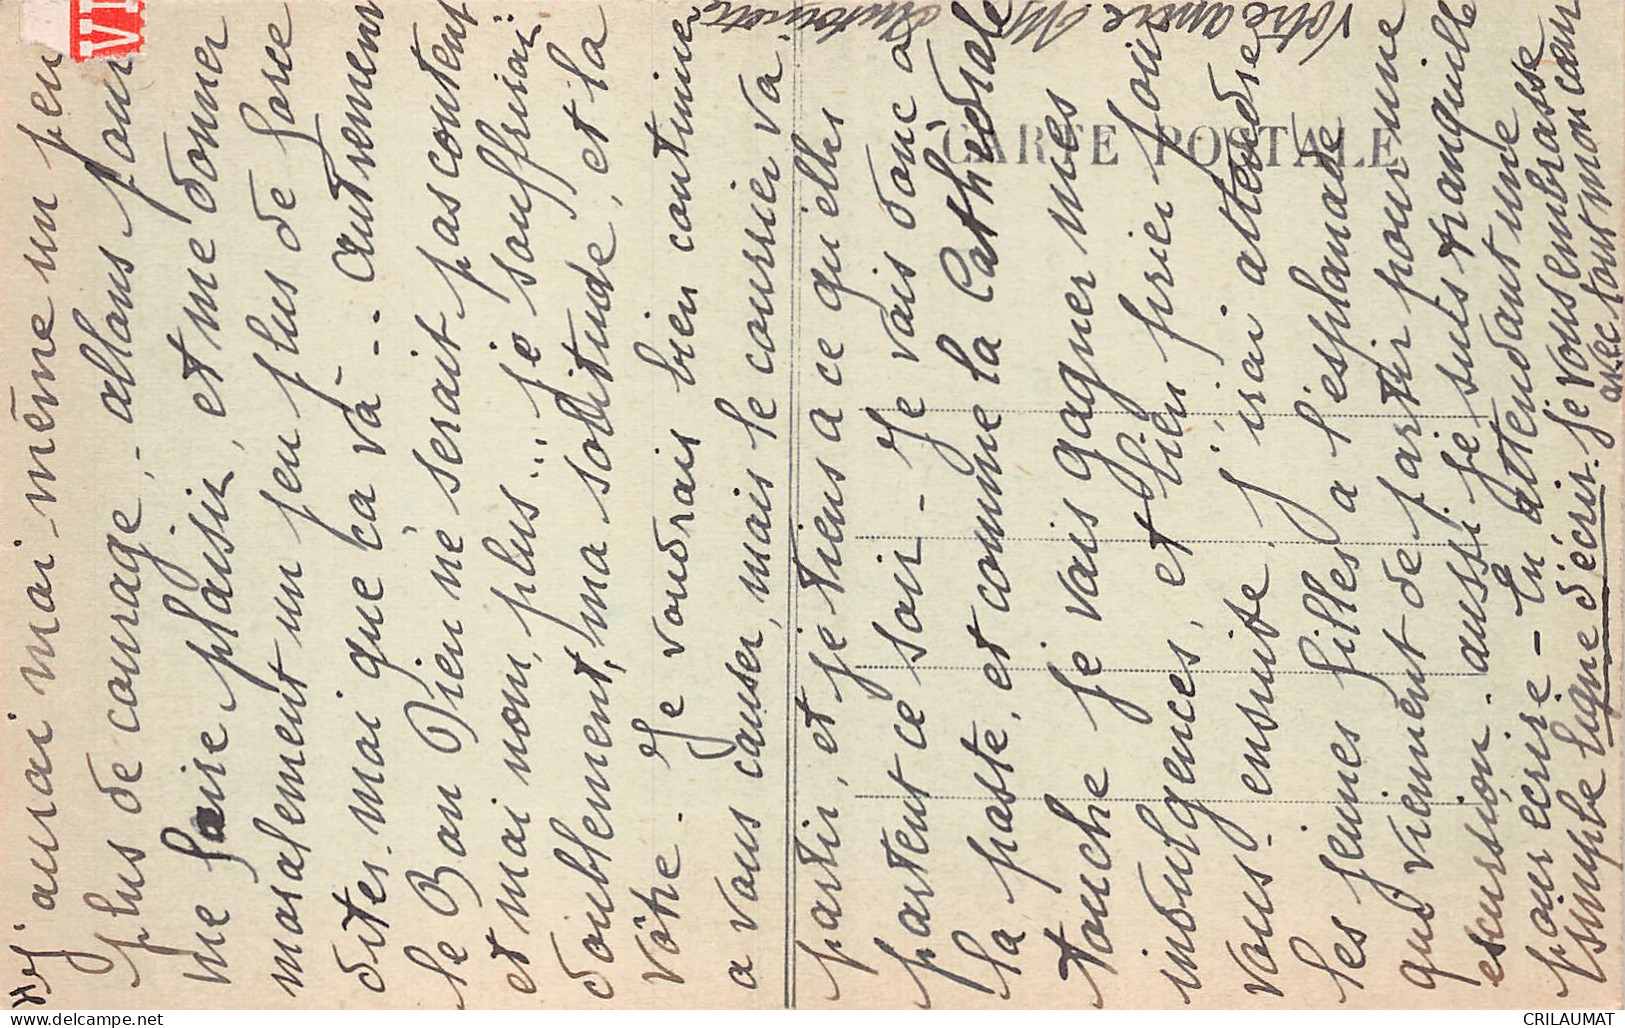 VI
J'aurai moi-même un peu
plus de courage, - allons pour
me faire plaisir, et me donner
moralement un peu plus de force
dites-moi que ça va -. autrement
le Bon Dieu ne serait pas content
et moi non, plus... je souffrirai
doublement, ma solitude, et la
vôtre. Je voudrais bien continuer
a vous causer, mais le courrier va
partir, et je tiens a ce qu'elles
partent ce soir - Je vais donc a
la poste, et comme la Cathédrale
touche je vais gagner mes
indulgences, et bien prier pour
vous. ensuite, j'irai attendre
les jeunes filles a l'esplanade
qui viennent de partir pour une
escursion. aussi je suis tranquille
pour écrire - En attendant une
simple ligne d'écrir. je vous embrasse
avec tout mon cœur
Votre amie
CARTE POSTALE
CRILAUMAT